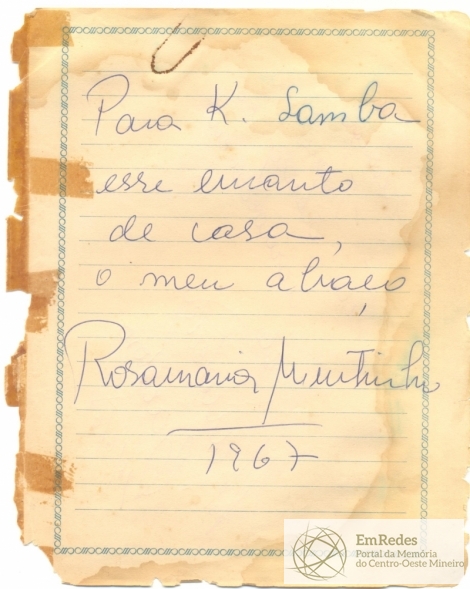 Para K. Samba
esse encanto
de casa,
o meu abraço
Rosamaria Murtinho
1967
EmRedes
Portal da Memória
do Centro-Oeste Mineiro